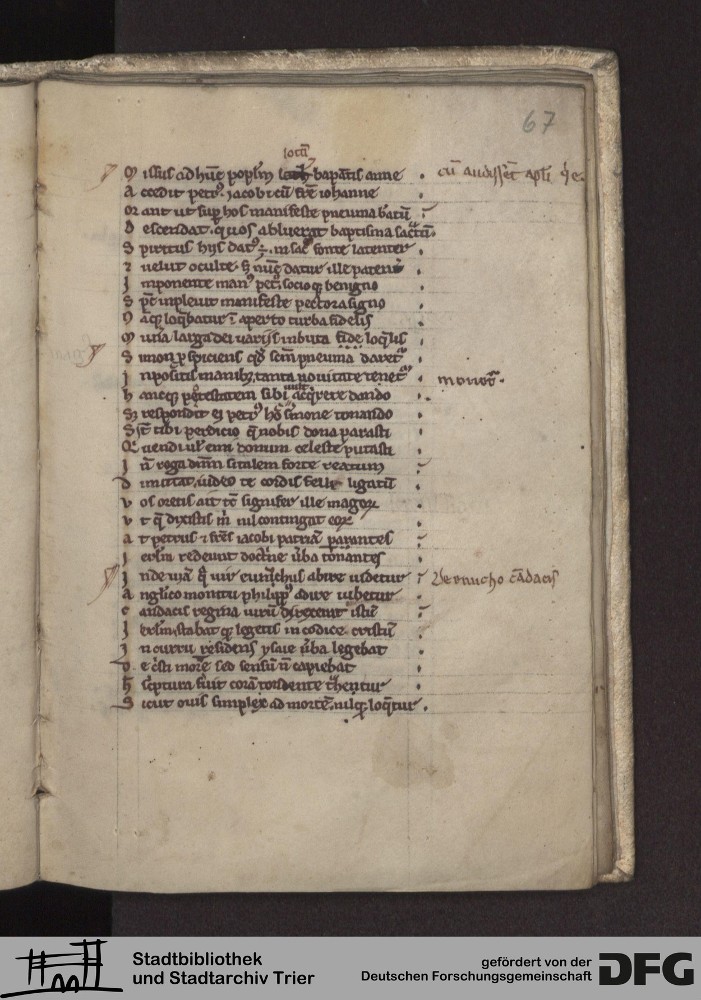 67
locū
M issus ad hūc pop̄lm baptātis anne
cū audissēt apl̄i qͥ e
A ccedit petrꝰ. iacobi cū frē iohanne
or ant ut suꝑ hos manifeste pneuma bt̄atū
D escendat. quos abluerat baptisma sactū.
S piritus hijs datꝰ ÷. in sac̄ fonte latenter
⁊ uelut oculte. s nūc datur ille patent̄
I mponente manꝰ pet. socio qꝫ benigno
S p̄c inpleuit manifeste pectora signo
aqꝫ loq̄batur ī aperto turba fidelis
M uīa larga dei uarijs inbuta fide loq̄lis
S imon ꝓspiciens qd̄ scm̄ pneuma daret
I npositis manibꝫ tanta nouitate tenet
h ancqꝫ potestatem sibi acqͥrere dando
respondit ei petrꝰ simone tonando
S īt tibi perdicio q̄ nobis dona parasti
Q uendi uł emi donum celeste putasti
I n̄ roga dn̄m si talem forte reatum
D imittat. uideo te cordis felle ligatū
v os oretis ait signifer ille magoꝝ
v t q̄ dixistis m̄ nil contingat eoꝝ
a t petrus ⁊ frēs iacobi patriā parantes
I erl̄m redeunt doctne ūba tonantes
I nde uiā qͣ uir eunuchus abire uidetur
De eunucho cādacis
A nglico monitu philippꝰ adire iubetur
c andacis regina uirū direxerat istū
I erl̄m. stabat qꝫ legens in codice cristū
I n curru residens ysaie ūba legebat
D e cristi morte sed sensū n̄ capiebat
h scͥptura fuit corā tondente
S icut ouis simplex ad mortē. nilqꝫ loqͥtur.
Stadtbibliothek
und Stadtarchiv Trier
gefördert von der
Deutschen Forschungsgemeinschaft
DFG